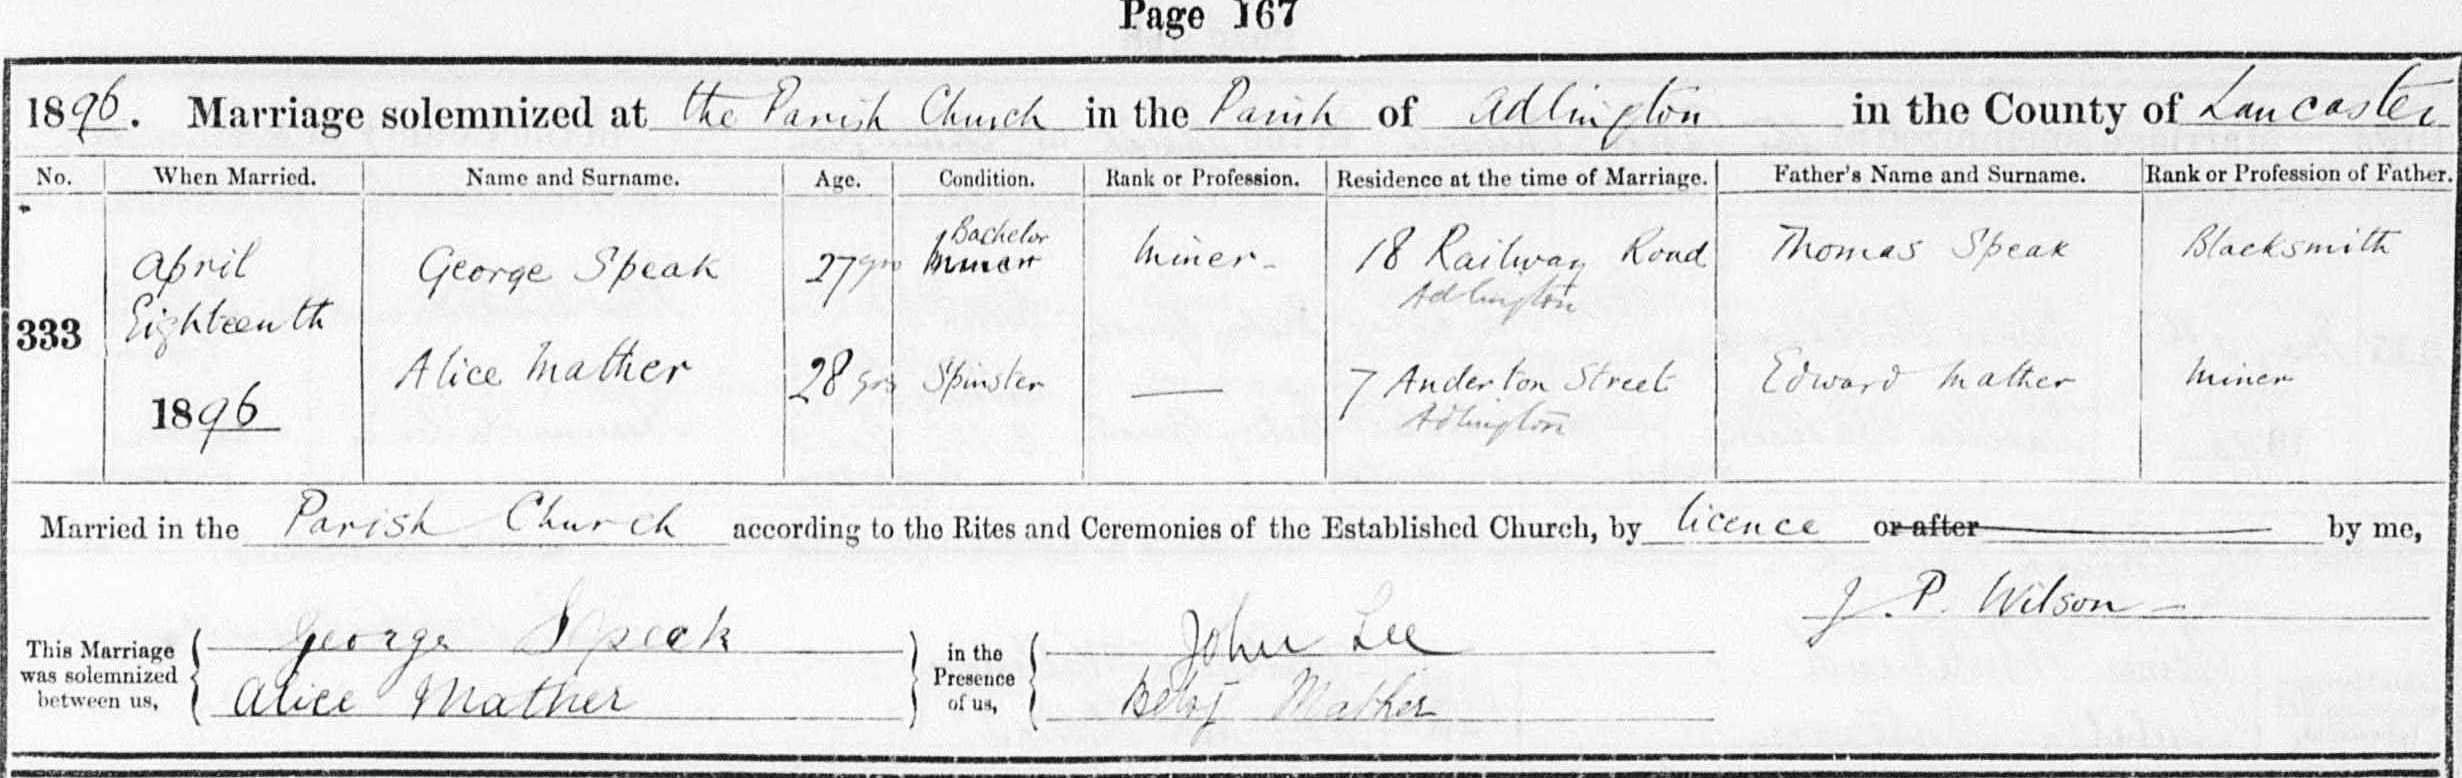 Page 167
1896. Marriage solemnized at the Parish Church in the Parish of Adlington in the County of Lancaster
No. When Married. Name and Surname. Age. Condition. Rank or Profession. Residence at the time of Marriage. Father's Name and Surname. Rank or Profession of Father.
333
April Eighteenth 1896
George Speak 27 yrs Bachelor Miner 18 Railway Road Adlington Thomas Speak Blacksmith
Alice Mather 28 yrs Spinster — 7 Anderton Street Adlington Edward Mather Miner
Married in the Parish Church according to the Rites and Ceremonies of the Established Church, by licence or after by me,
J. P. Wilson
This Marriage was solemnized between us, George Speak Alice Mather
in the Presence of us, John Lee Betsy Mather